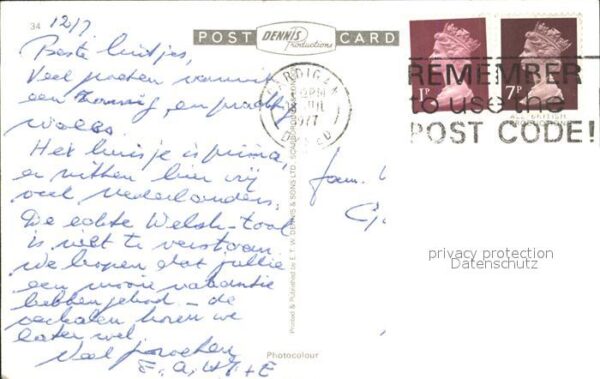 34
12/7
POST DENNIS Productions CARD
Beste luitjes,
Veel groeten vanuit
een zonnig, en prachtig
Wales.
Het huisje is prima,
er zitten hier vrij
veel Nederlanders.
De echte Welsh-taal
is niet te verstaan.
We hopen dat jullie
een mooie vakantie
hebben gehad - de
verhalen horen we
later wel.
Veel groeten,
Fam.
Photocolour
Printed & Published by E. T. W. DENNIS & SONS LTD., SCARBOROUGH
CARDIGAN
PM
JUL
1977
DYFED
1P
7P
REMEMBER
to use the
POST CODE!
privacy protection
Datenschutz